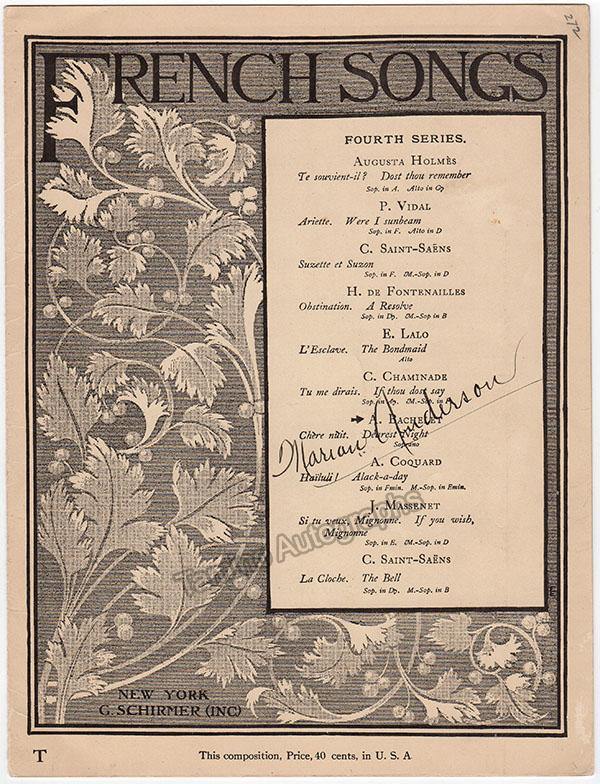 272
FRENCH SONGS
FOURTH SERIES.
AUGUSTA HOLMÈS
Te souvient-il? Dost thou remember
Sop. in A. Alto in G♭
P. VIDAL
Ariette. Were I sunbeam
Sop. in F. Alto in D
C. SAINT-SAËNS
Suzette et Suzon
Sop. in F. M.-Sop. in D
H. DE FONTENAILLES
Obstination. A Resolve
Sop. in D♭. M.-Sop in B
E. LALO
L'Esclave. The Bondmaid
Alto
C. CHAMINADE
Tu me dirais. If thou dost say
Sop. in M.-Sop. in
A. BACHELET
Chère nuit. Dearest Night
Soprano
Marian Anderson
A. COQUARD
Haïluli! Alack-a-day
Sop. in Fmin. M.-Sop. in Emin.
J. MASSENET
Si tu veux, Mignonne. If you wish,
Mignonne
Sop. in E. M.-Sop. in D
C. SAINT-SAËNS
La Cloche. The Bell
Sop. in D♭. M.-Sop. in B
Tamino Autographs
NEW YORK
G. SCHIRMER (INC)
T This composition, Price, 40 cents, in U. S. A